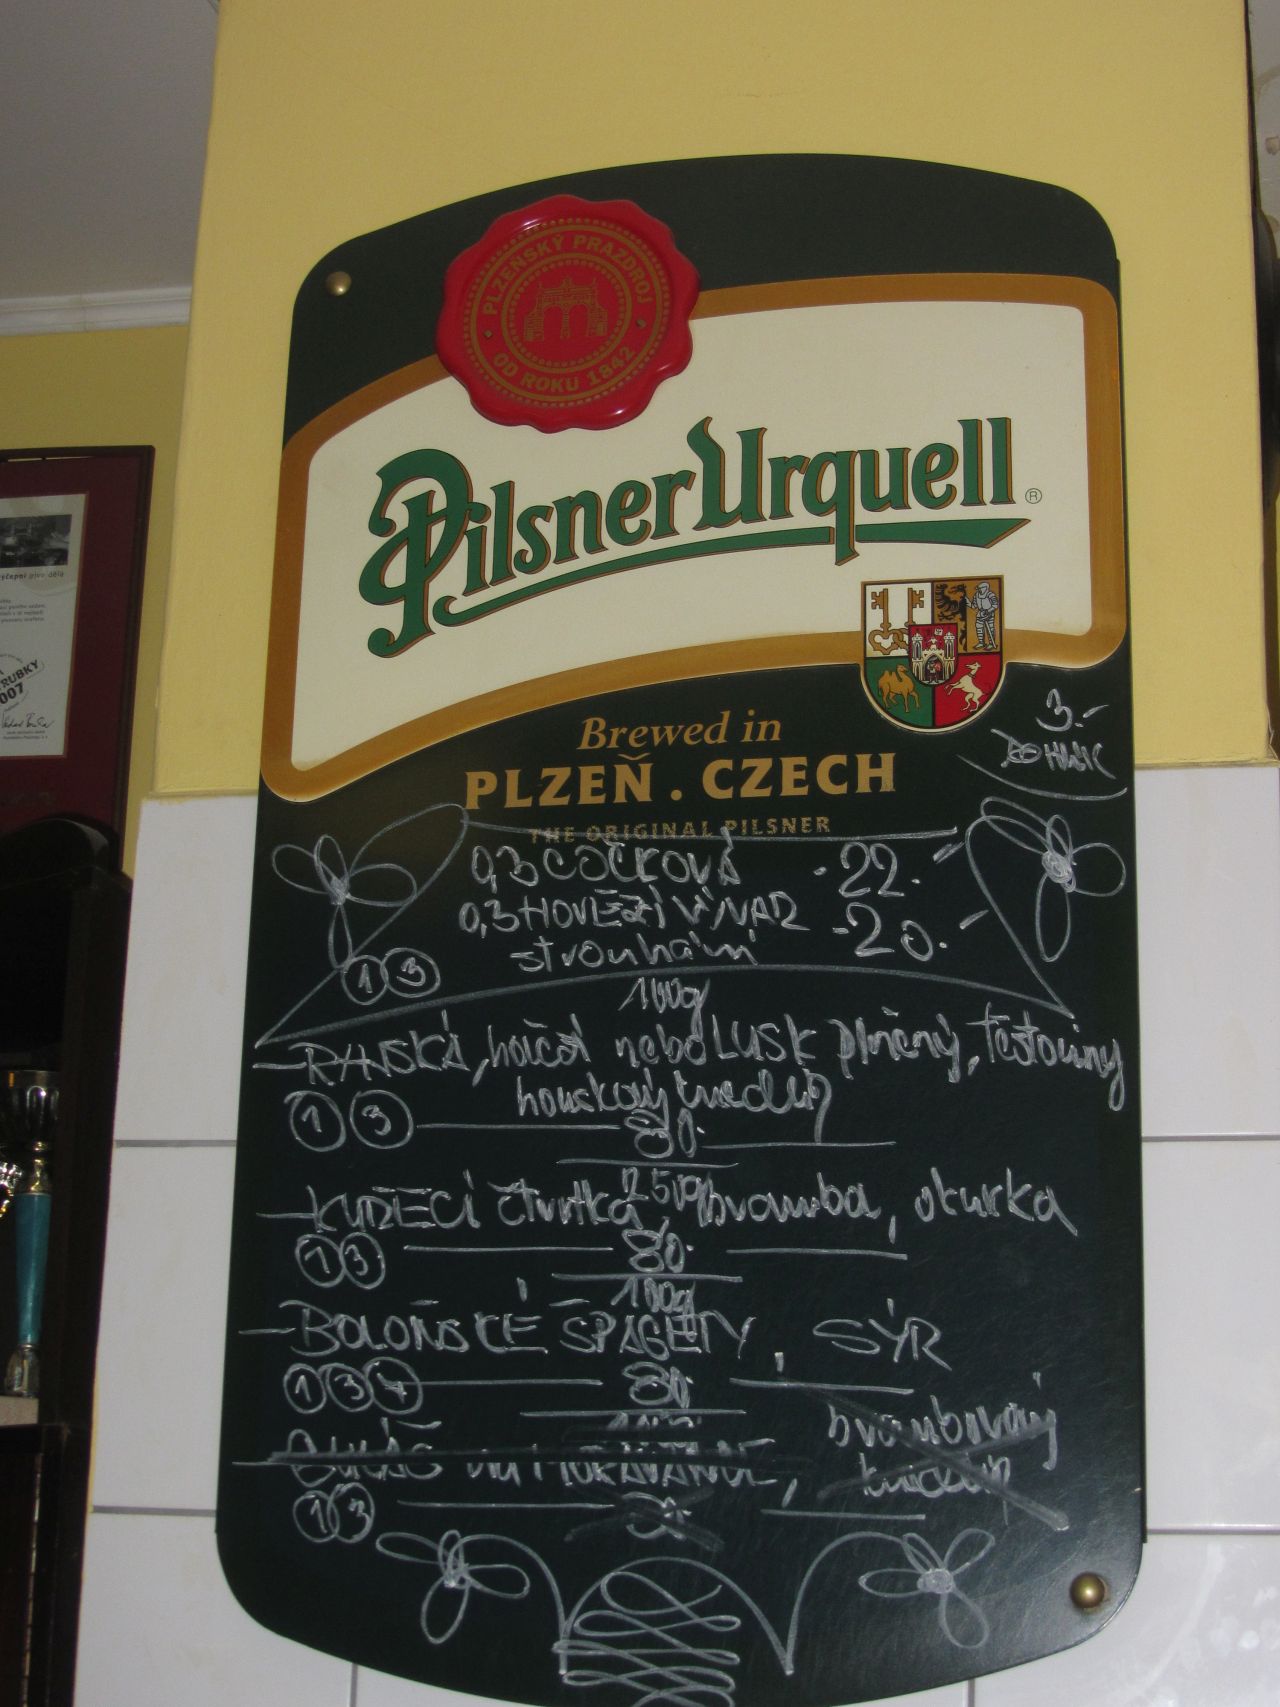 PLZEŇSKÝ PRAZDROJ
OD ROKU 1842
Pilsner Urquell ®
Brewed in
PLZEŇ . CZECH
THE ORIGINAL PILSNER
3.-
0,3 ČOČKOVÁ 22.-
0,3 HOVĚZÍ VÝVAR 20.-
strouhání
1 3
100g
RAŇSKÁ, hovězí nebo LUSK plněný, těstoviny
houskový knedlík
1 3 80.-
250g
KUŘECÍ čtvrtka, brambor, okurka
1 3 80.-
100g
BOLOŇSKÉ ŠPAGETY, SÝR
1 3 7 80.-
bramborový
knedlík
1 3
výčepní pivo dělá
2007